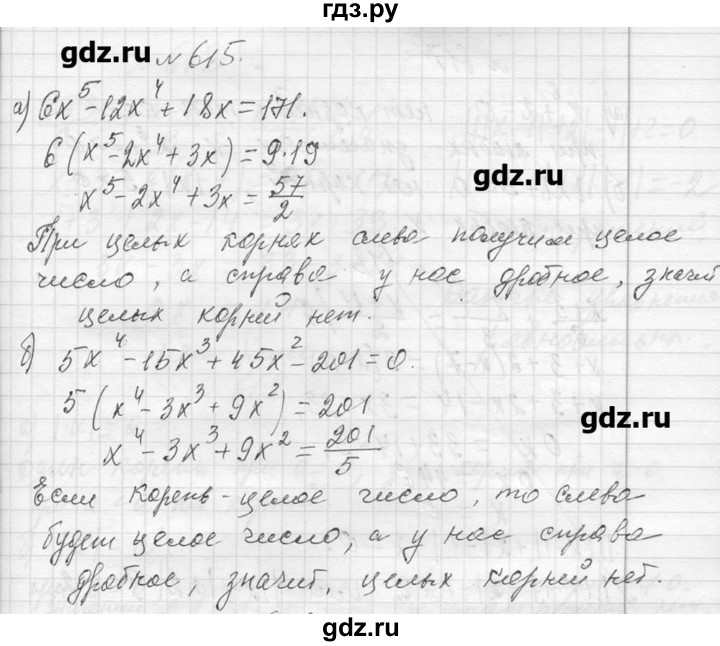 гдз.ру
gdz.ru
№615.
а) 6x⁵-12x⁴+18x=171.
6(x⁵-2x⁴+3x)=9·19
x⁵-2x⁴+3x=57/2
gdz.ru
При целых корнях слева получим целое
число, а справа у нас дробное, значит
целых корней нет.
б) 5x⁴-15x³+45x²-201=0.
5(x⁴-3x³+9x²)=201
x⁴-3x³+9x²=201/5
gdz.ru
Если корень - целое число, то слева
будет целое число, а у нас справа
дробное, значит, целых корней нет.
gdz.ru